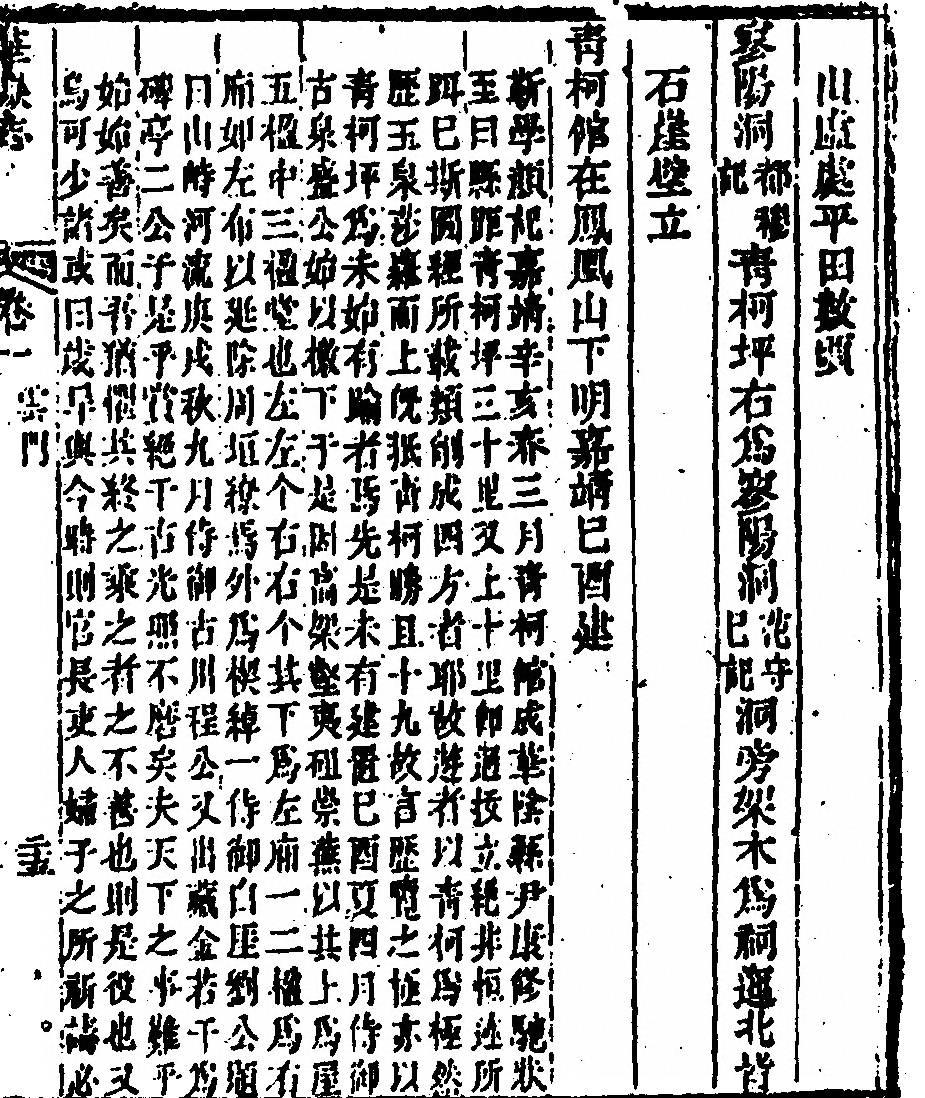 山盧處平田數頃
寥陽洞都穆記青柯坪右爲寥陽洞沱守巳記洞旁架木爲祠迤北皆
石崖壁立
青柯館在鳳凰山下明嘉靖巳酉建
靳學顏記嘉靖辛亥春三月青柯館成華陰縣尹康修馳狀
至曰縣距青柯坪三十里又上十里卽過技立絕非恒迹所
踄巳斯圖經所載類削成四方者耶故遊者以青柯爲極然
歷玉泉莎蘿而上旣抵青柯勝且十九故言歷覽之極亦以
青柯坪爲未始有踰者焉先是未有建置巳酉夏四月侍御
古泉盛公始以檄下于是因高架壑夷砠崇蕪以其上爲屋
五楹中三楹堂也左左个右右个其下爲左廂一二楹爲右
廂如左布以延除周垣繚焉外爲楔綽一侍御白厓劉公題
曰山峙河流庚戌秋九月侍御古川程公又出藏金若干爲
碑亭二公于是乎賞絕千古光照不磨矣夫天下之事難乎
始始善矣而吾猶懼其終之乘之者之不善也則是役也又
烏可少諸或曰歲旱與今時則官長吏人婦子之所祈禱必
華嶽志
卷一
雲門